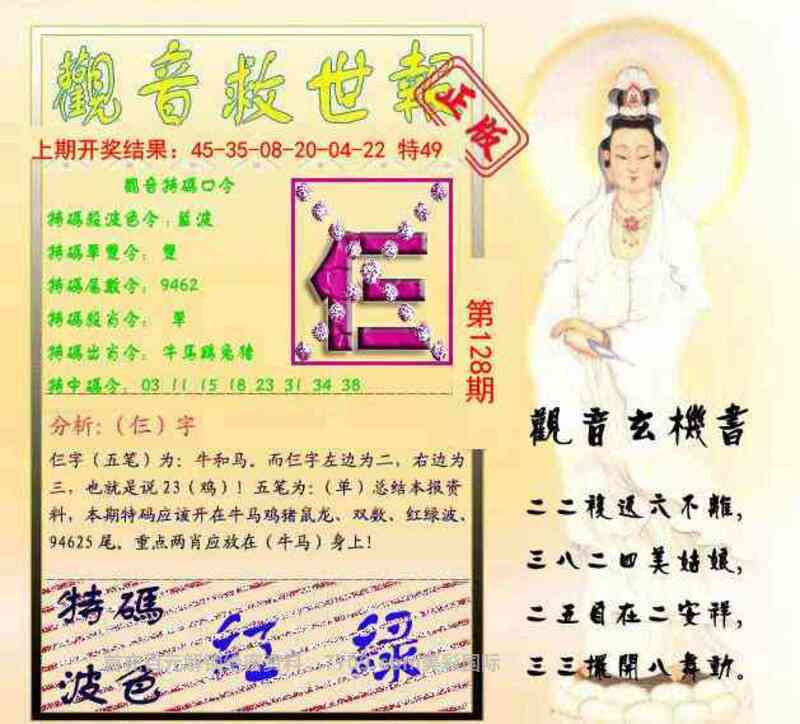 觀音救世報
正版
上期开奖结果：45-35-08-20-04-22 特49
觀音特碼口令
特碼殺波色令：藍波
特碼單雙令：雙
特碼尾數令：9462
特碼殺肖令：單
特碼出肖令：牛馬鷄兔猪
特中碼令：03 11 15 18 23 31 34 38
仨
第128期
分析:（仨）字
仨字（五笔）为：牛和马。而仨字左边为二，右边为
三，也就是说23（鸡）！五笔为：（单）总结本报资
料，本期特码应该开在牛马鸡猪鼠龙、双数、红绿波、
94625尾。重点两肖应放在（牛马）身上！
特碼
波色
红 绿
觀音玄機書
二二複返六不離，
三八二四美姑娘，
二五自在二安祥，
三三擺開八舞動。